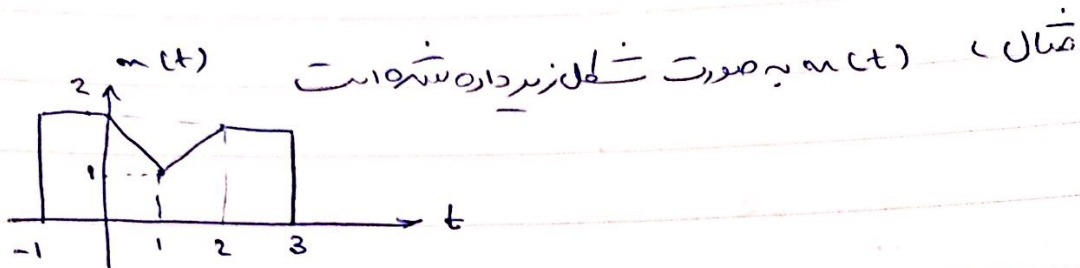 مثال، x(t) به صورت شکل زیر داده شده است
x(t)
2
1
-1 1 2 3 t